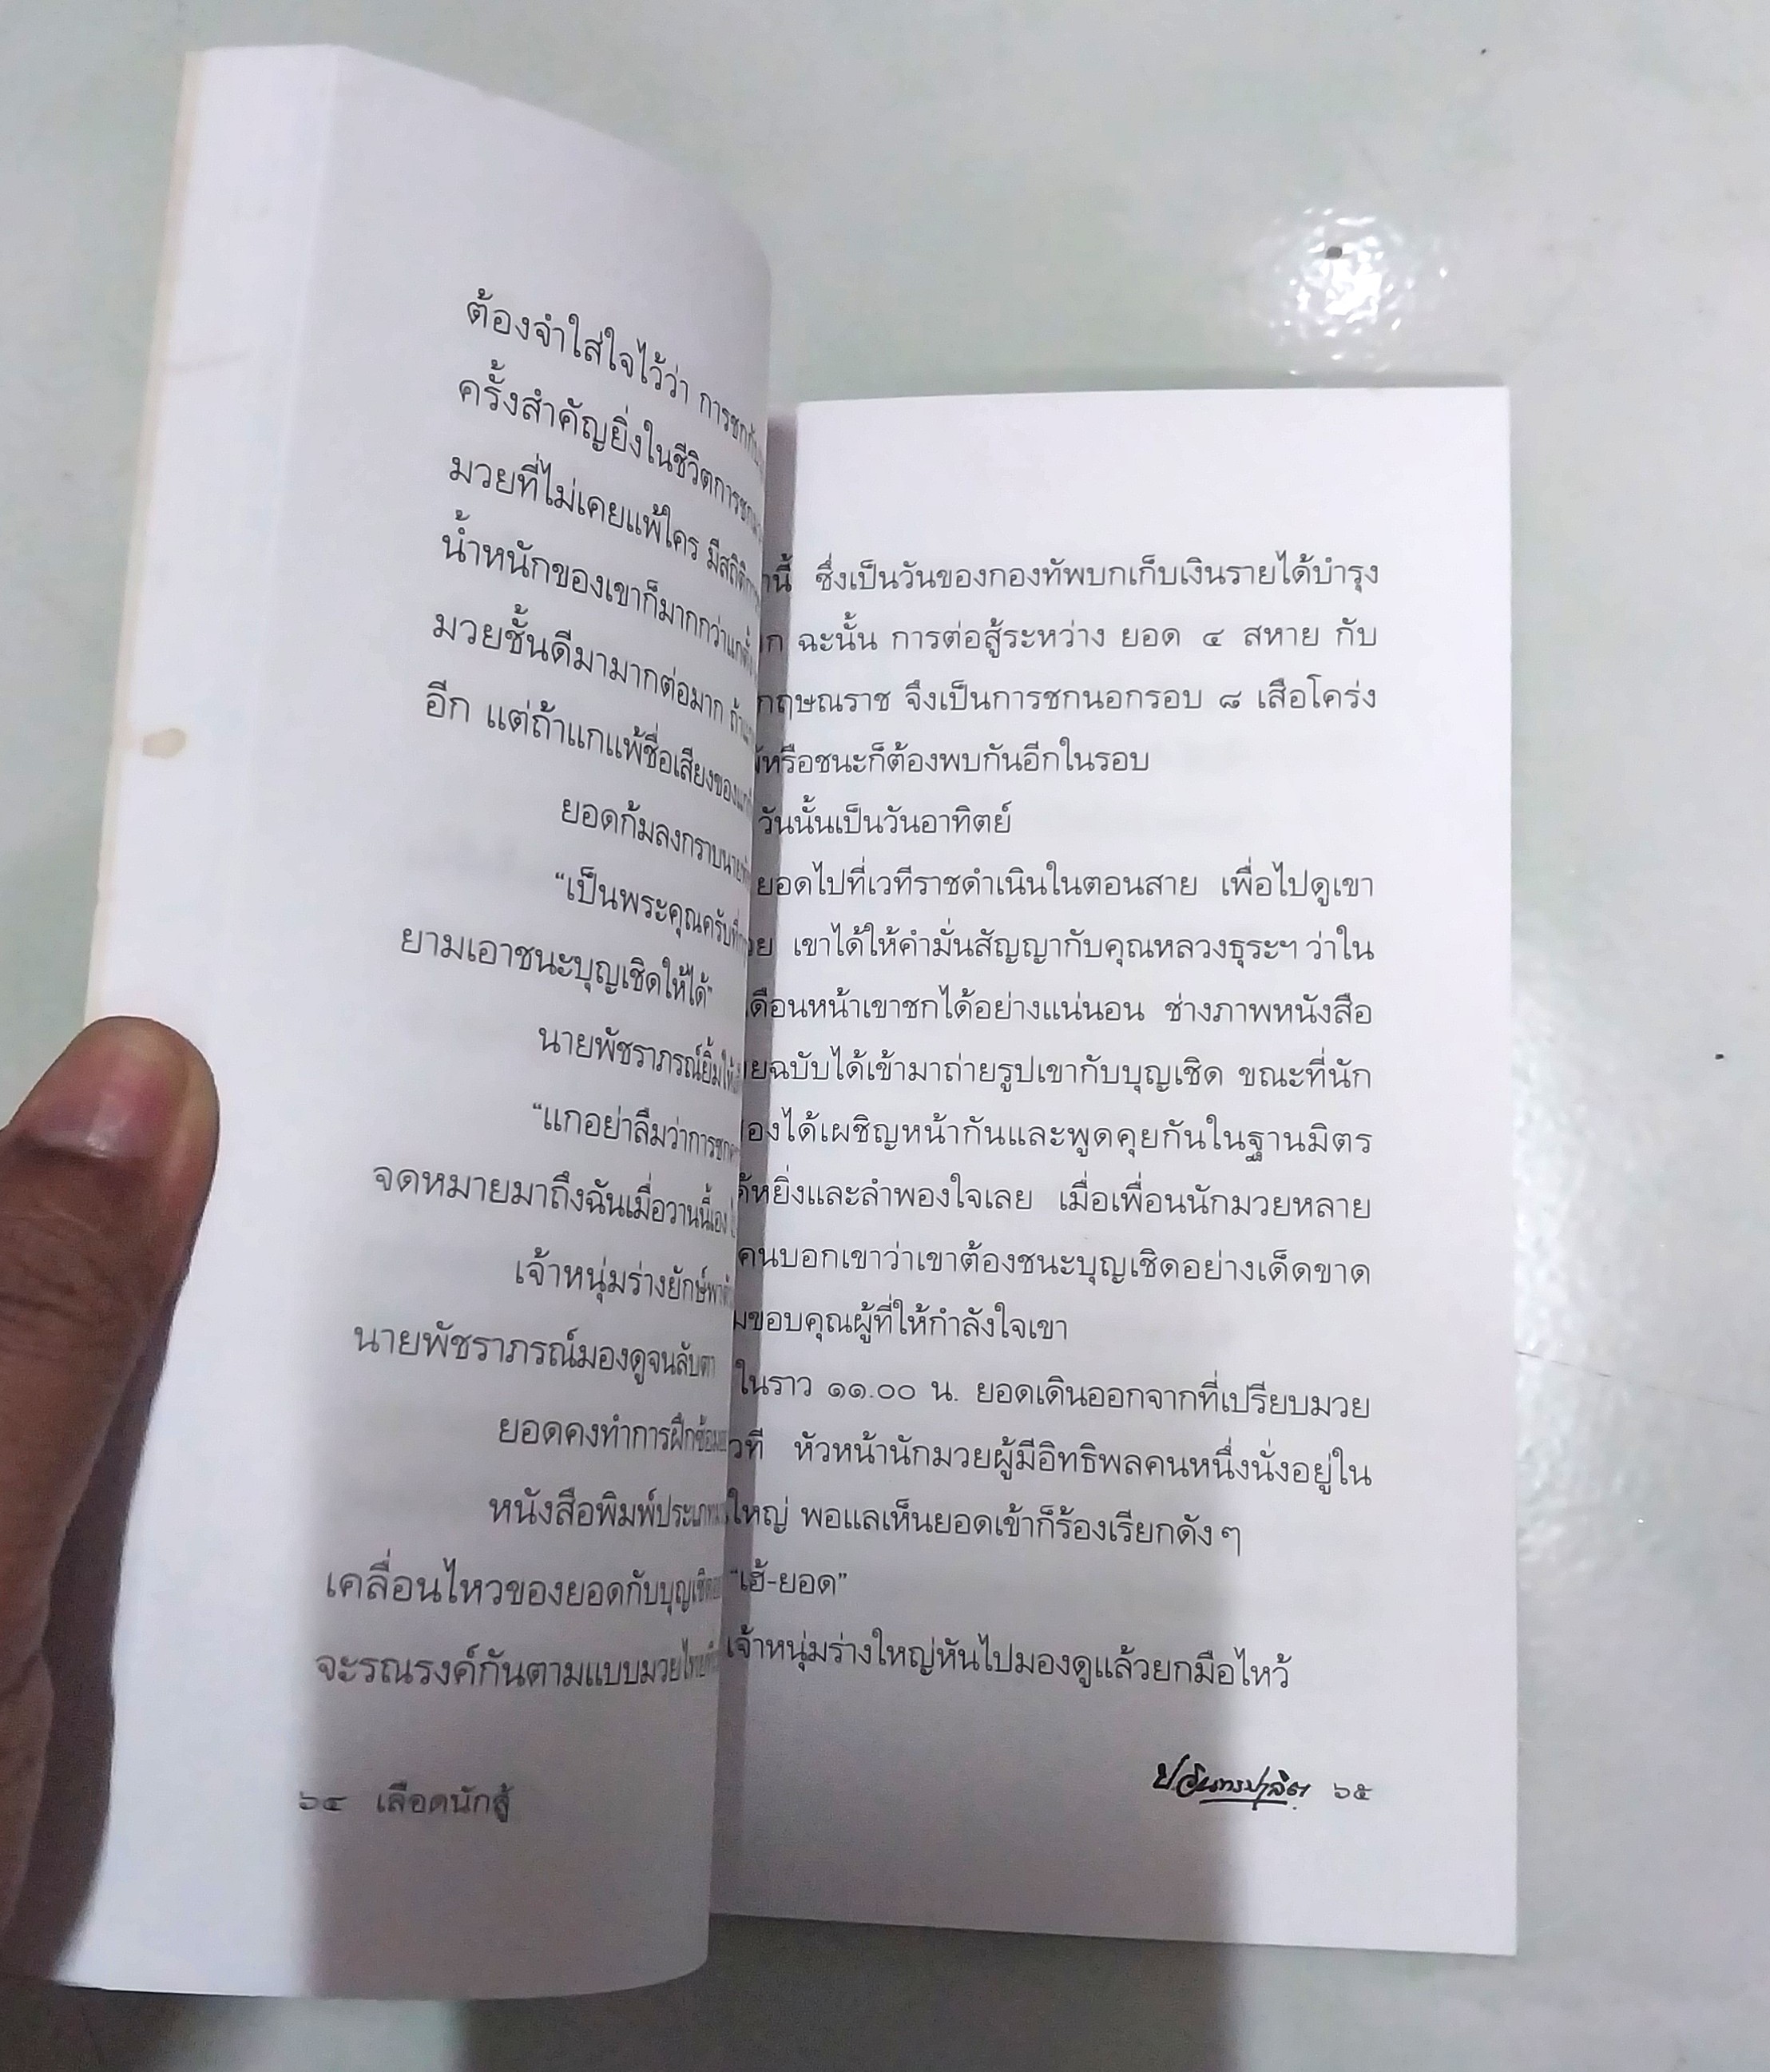 ต้องจำใส่ใจไว้ว่า
ครั้งสำคัญยิ่งในชีวิตการชก
มวยที่ไม่เคยแพ้ใคร
น้ำหนักของเขาก็มากกว่าแก
มวยชั้นดีมามากต่อมาก
อีก แต่ถ้าแกแพ้ชื่อเสียงของ
ยอดก้มลงกราบ
“เป็นพระคุณครับ
ยามเอาชนะบุญเชิดให้ได้”
นายพัชราภรณ์ยิ้มให้
“แกอย่าลืมว่าการชก
จดหมายมาถึงฉันเมื่อวานนี้เอง
เจ้าหนุ่มร่างยักษ์
นายพัชราภรณ์มองดูจนลับตา
ยอดคงทำการฝึกซ้อม
หนังสือพิมพ์ประเภท
เคลื่อนไหวของยอดกับบุญเชิด
จะรณรงค์กันตามแบบมวยไทย
๖๔ เลือดนักสู้
ซึ่งเป็นวันของกองทัพบกเก็บเงินรายได้บำรุง
ฉะนั้น การต่อสู้ระหว่าง ยอด ๔ สหาย กับ
จึงเป็นการชกนอกรอบ ๘ เสือโคร่ง
หรือชนะก็ต้องพบกันอีกในรอบ
วันนั้นเป็นวันอาทิตย์
ยอดไปที่เวทีราชดำเนินในตอนสาย เพื่อไปดูเขา
เขาได้ให้คำมั่นสัญญากับคุณหลวงธุระฯ ว่าใน
เดือนหน้าเขาชกได้อย่างแน่นอน ช่างภาพหนังสือ
ฉบับได้เข้ามาถ่ายรูปเขากับบุญเชิด ขณะที่นัก
ได้เผชิญหน้ากันและพูดคุยกันในฐานมิตร
หยิ่งและลำพองใจเลย เมื่อเพื่อนนักมวยหลาย
คนบอกเขาว่าเขาต้องชนะบุญเชิดอย่างเด็ดขาด
ขอบคุณผู้ที่ให้กำลังใจเขา
ในราว ๑๑.๐๐ น. ยอดเดินออกจากที่เปรียบมวย
หัวหน้านักมวยผู้มีอิทธิพลคนหนึ่งนั่งอยู่ใน
ใหญ่ พอแลเห็นยอดเข้าก็ร้องเรียกดัง ๆ
“เฮ้-ยอด”
เจ้าหนุ่มร่างใหญ่หันไปมองดูแล้วยกมือไหว้
ป.อินทรปาลิต ๖๕